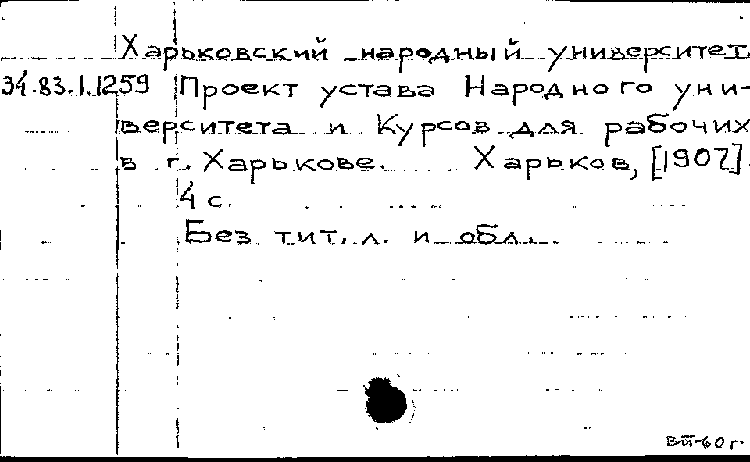 Харьковский народный университет.
34.83.1.1259 Проект устава Народного уни-
верситета и Курсов для рабочих
в г. Харькове. Харьков, [1907].
4 с.
Без тит. л. и обл.